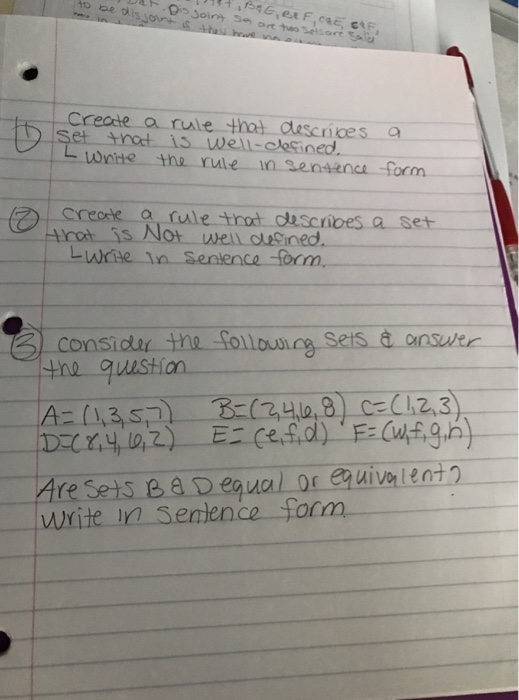 to be disjoint. Disjoint sets are two sets are said
① Create a rule that describes a
set that is well-defined.
Write the rule in sentence form
② create a rule that describes a set
that is Not well defined.
Write in sentence form.
③ consider the following sets & answer
the question
A=(1,3,5,7) B=(2,4,6,8) C=(1,2,3)
D=(8,4,6,2) E=(e,f,d) F=(w,f,g,h)
Are Sets B & D equal or equivalent?
Write in sentence form.